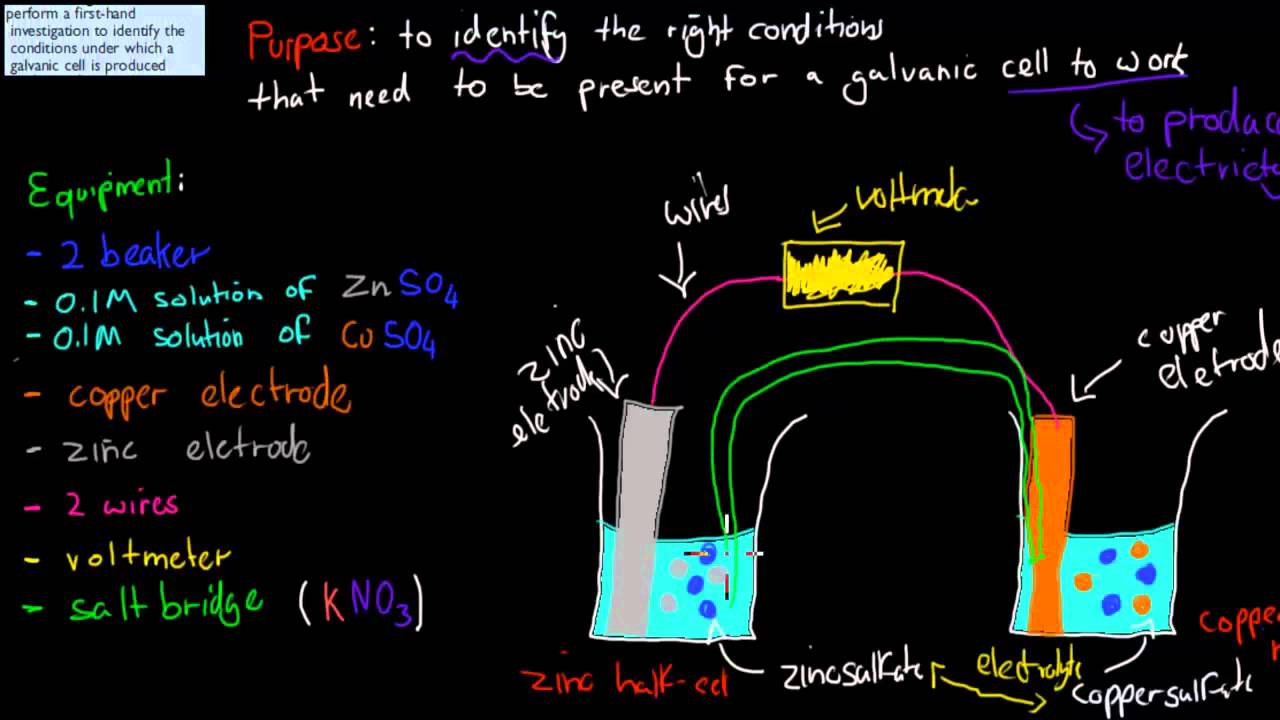 perform a first-hand
investigation to identify the
conditions under which a
galvanic cell is produced
Purpose: to identify the right conditions
that need to be present for a galvanic cell to work
to produc
electricity
Equipment:
- 2 beaker
- 0.1M solution of ZnSO4
- 0.1M solution of CuSO4
- copper electrode
- zinc eletrode
- 2 wires
- voltmeter
- salt bridge (KNO3)
wires
voltmeta
zinc
electrode
copper
eletrode
zinc half-cel
zincsulfate
electrolyte
coppersulfate
coppe